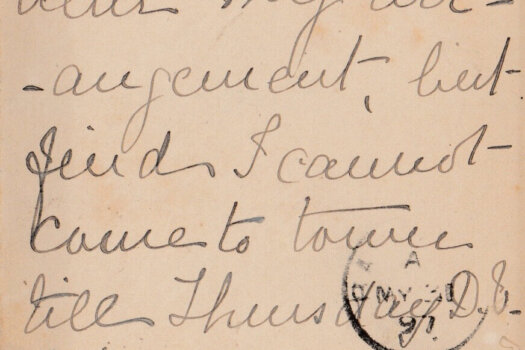 my ar-
-angement, but
find I cannot
come to town
till Thursday D.V.
A
MY
97